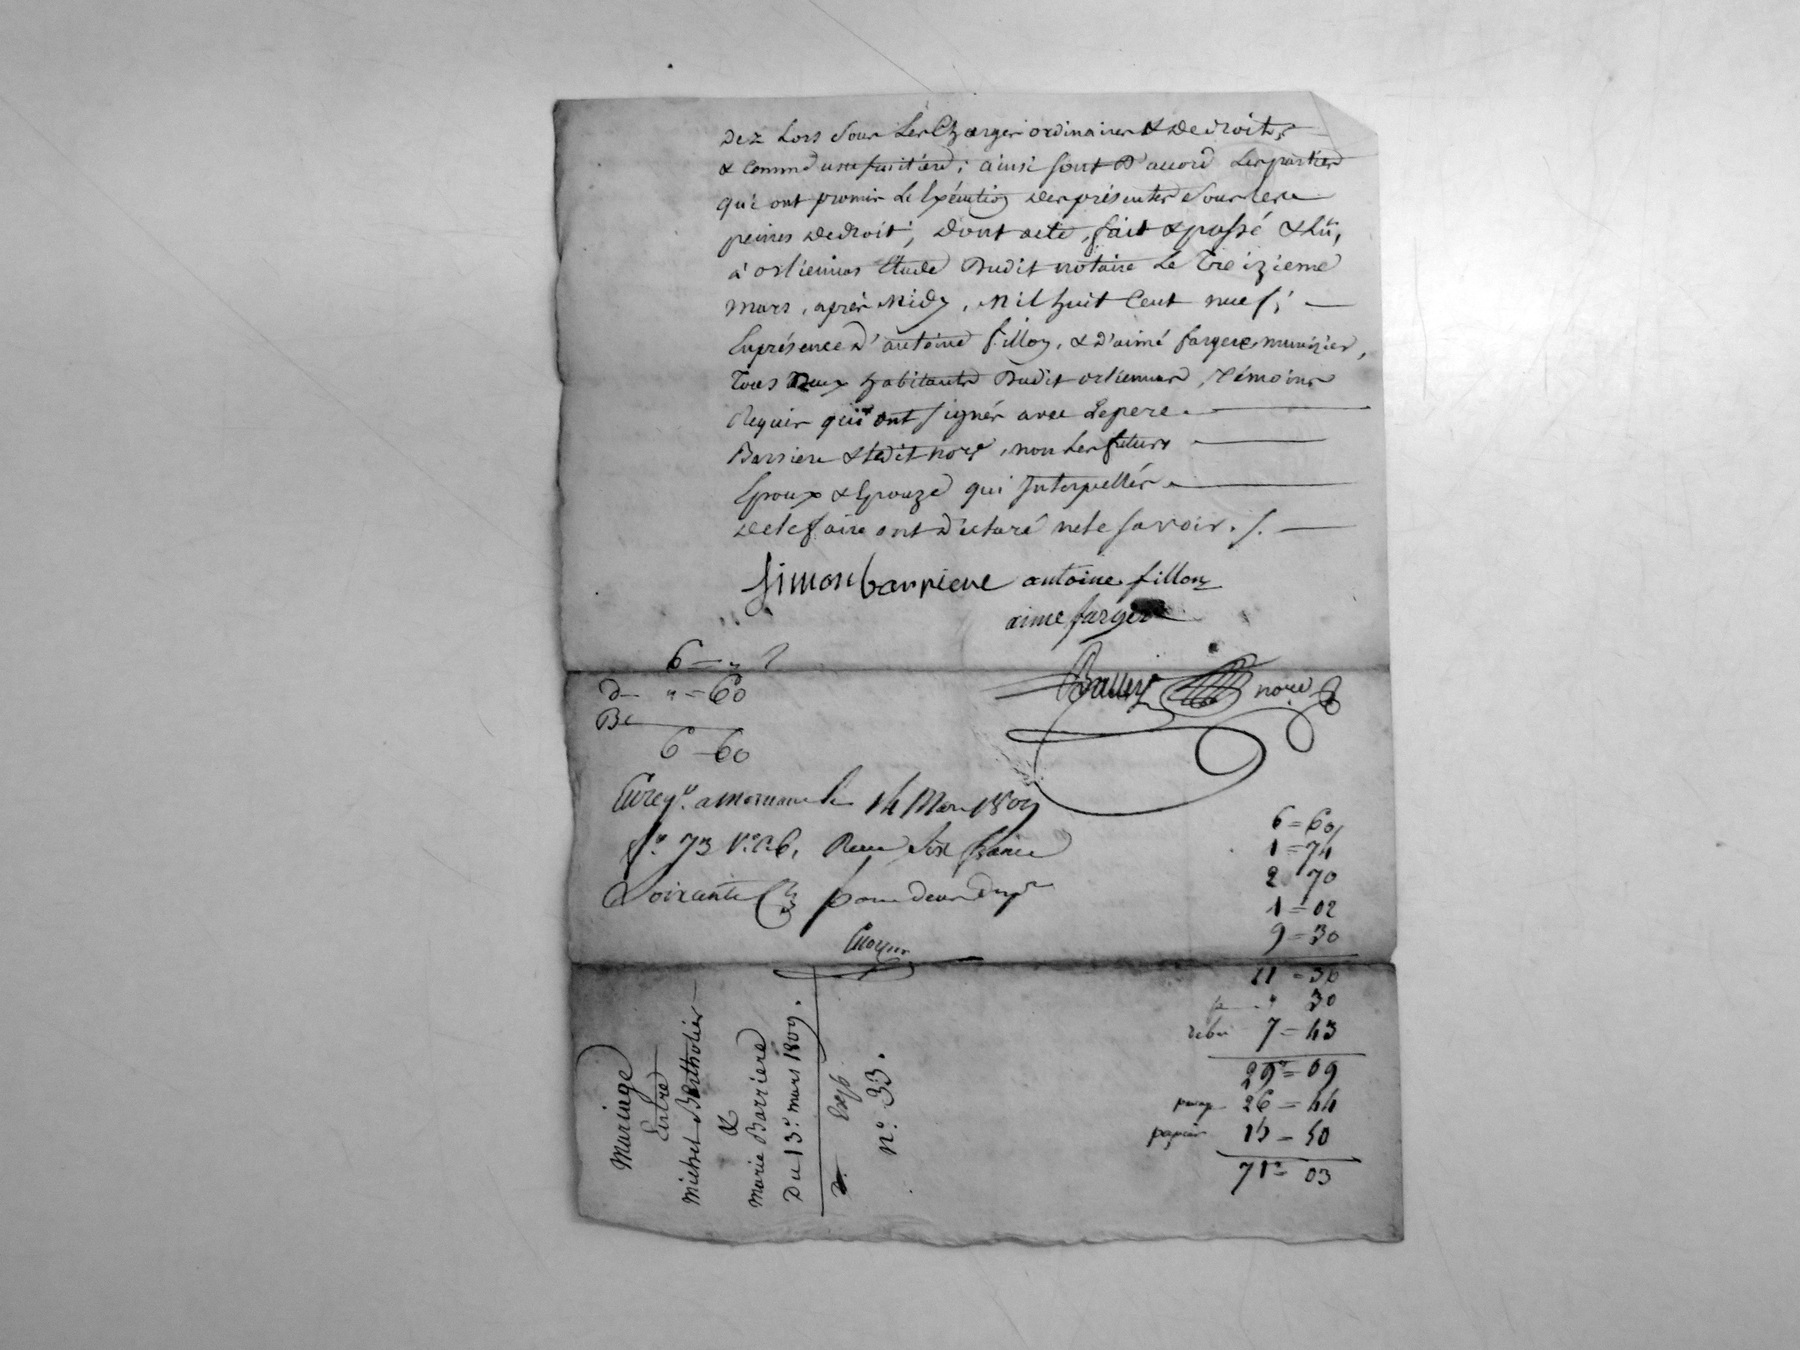 Dez Lors Sous Les Charges ordinaires & De droits,
& comme usufruitiere; ainsi sont D'accord Les parties
qui ont promis L'Exécution Des présentes Sous les
peines De droit; Dont acte, fait & passé & Lû,
à orlienas Etude Dudit notaire Le Treizieme
mars, après Midy, Mil huit Cent neuf;
En présence D'antoine fillon, & D'aimé fargere,
Tous Deux habitants Dudit orlienas, Témoins
Requis qui ont signés avec Le pere
Barriere & Ledit nore, non Les futurs
Epoux & Epouze qui Interpellés
De le faire ont Déclaré ne le savoir ./.
Simon barriere antoine fillon
aime fargere
6 — "
D — " = 60
6 — 60
nore
Enregt. a Mornant le 14 Mars 1809
fo. 73 Vo. C. 6, Recu Six francs
Soixante Cs pour deux
6 = 60
1 = 74
2 70
1 = 02
9 = 30
11 = 30
" 30
7 = 43
29 = 09
26 = 44
papier 15 = 50
71 = 03
Mariage
Entre
Michel Bertholier
&
Marie Barriere
Du 13e. mars 1809.
Exp
No. 33.